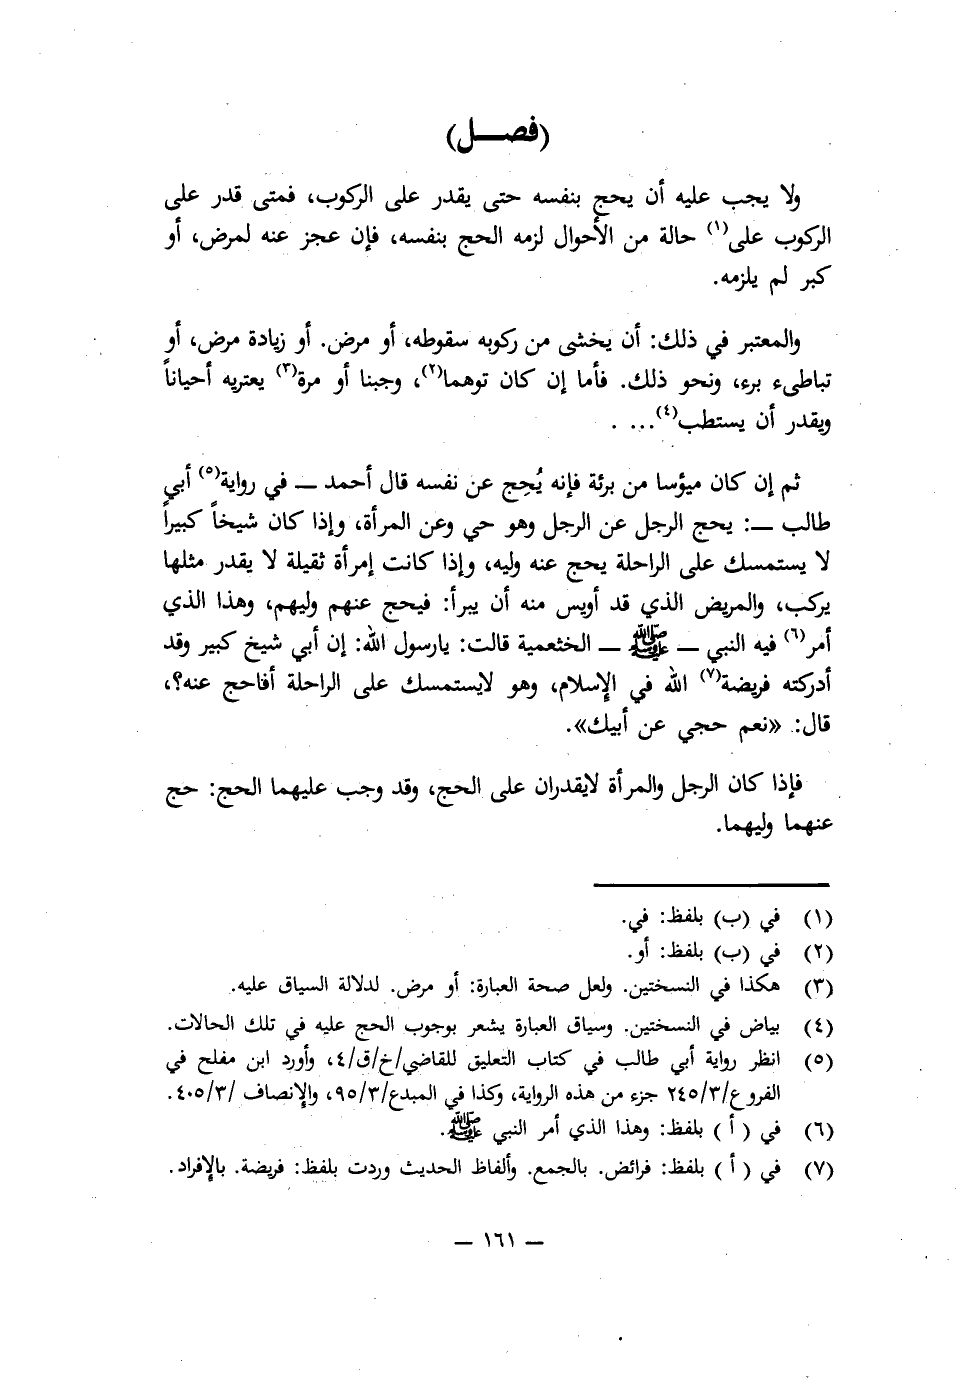 (فصــل)
ولا يجب عليه أن يحج بنفسه حتى يقدر على الركوب، فمتى قدر على
الركوب على(١) حالة من الأحوال لزمه الحج بنفسه، فإن عجز عنه لمرض، أو
كبر لم يلزمه.
والمعتبر في ذلك: أن يخشى من ركوبه سقوطه، أو مرض. أو زيادة مرض، أو
تباطىء برء، ونحو ذلك. فأما إن كان توهما(٢)، وجبنا أو مرة(٣) يعتريه أحياناً
ويقدر أن يستطب(٤)... .
ثم إن كان ميؤسا من برئة فإنه يُحِج عن نفسه قال أحمد — في رواية(٥) أبي
طالب —: يحج الرجل عن الرجل وهو حي وعن المرأة، وإذا كان شيخاً كبيراً
لا يستمسك على الراحلة يحج عنه وليه، وإذا كانت إمرأة ثقيلة لا يقدر مثلها
يركب، والمريض الذي قد أويس منه أن يبرأ: فيحج عنهم وليهم، وهذا الذي
أمر(٦) فيه النبي — ﷺ — الخثعمية قالت: يارسول الله: إن أبي شيخ كبير وقد
أدركته فريضة(٧) الله في الإسلام، وهو لايستمسك على الراحلة أفاحج عنه؟،
قال: «نعم حجي عن أبيك».
فإذا كان الرجل والمرأة لايقدران على الحج، وقد وجب عليهما الحج: حج
عنهما وليهما.
(١) في (ب) بلفظ: في.
(٢) في (ب) بلفظ: أو.
(٣) هكذا في النسختين. ولعل صحة العبارة: أو مرض. لدلالة السياق عليه.
(٤) بياض في النسختين. وسياق العبارة يشعر بوجوب الحج عليه في تلك الحالات.
(٥) انظر رواية أبي طالب في كتاب التعليق للقاضي/خ/ق/٤، وأورد ابن مفلح في
الفروع/٢٤٥/٣ جزء من هذه الرواية، وكذا في المبدع/٩٥/٣، والإنصاف /٤٠٥/٣.
(٦) في ( أ ) بلفظ: وهذا الذي أمر النبي ﷺ.
(٧) في ( أ ) بلفظ: فرائض. بالجمع. وألفاظ الحديث وردت بلفظ: فريضة. بالإفراد.
— ١٦١ —